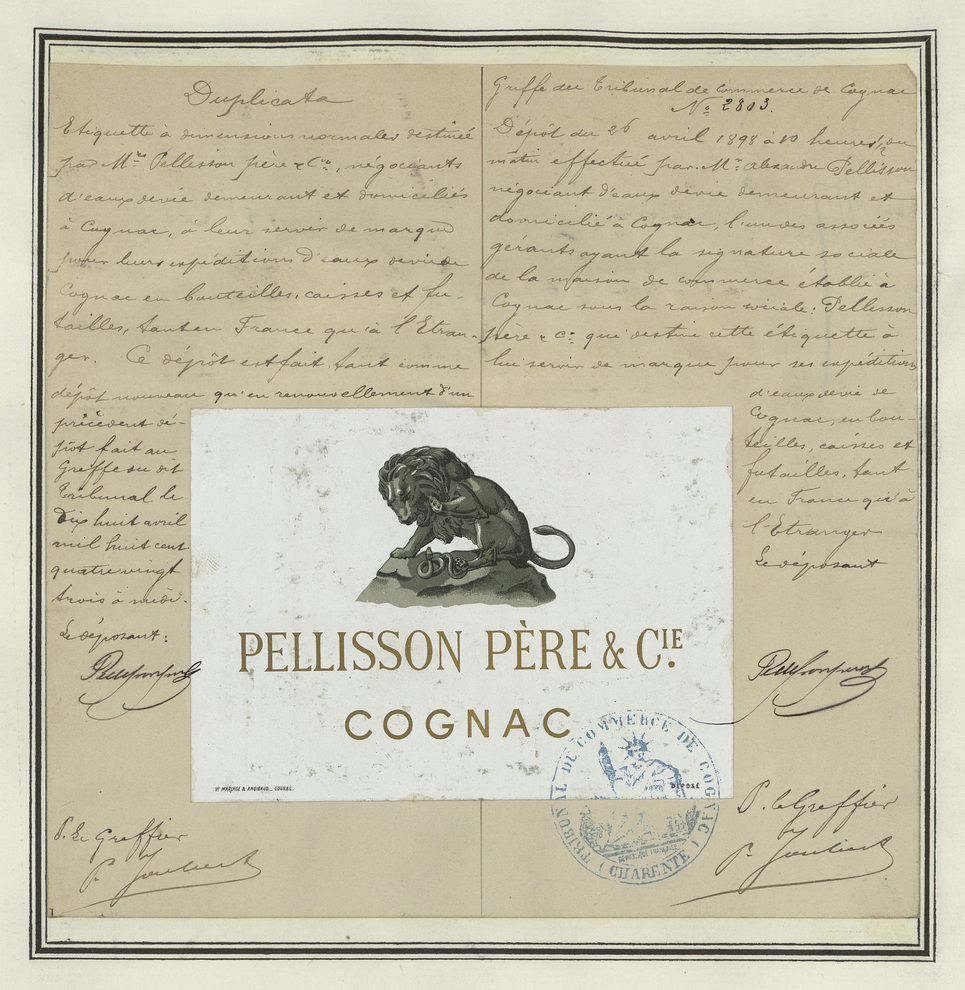 Duplicata
Etiquette à dimensions normales destinée
par Mrs Pellisson père & Cie, négociants
d'eaux devie demeurant et domiciliés
à Cognac, à leur servir de marque
pour leurs expéditions d'eaux devie de
Cognac en bouteilles, caisses et fu-
tailles, tant en France qu'à l'Etran-
ger. Ce dépôt est fait, tant comme
dépôt nouveau qu'en renouvellement d'un
précédent dé-
pôt fait au
Greffe du dit
Tribunal le
dix huit avril
mil huit cent
quatre vingt
trois à midi.
Le déposant:
P. Le Greffier
Greffe du Tribunal de Commerce de Cognac
No 2803.
Dépôt du 26 avril 1898 à 10 heures 1/2 du
matin effectué par Mr Alexandre Pellisson
négociant d'eaux devie demeurant et
domicilié à Cognac, l'un des associés
gérants ayant la signature sociale
de la maison de commerce établie à
Cognac sous la raison sociale: Pellisson
père & Cie qui destine cette étiquette à
lui servir de marque pour ses expéditions
d'eaux devie de
Cognac, en bou-
teilles, caisses et
futailles, tant
en France qu'à
l'Etranger
Le déposant
P. le Greffier
PELLISSON PÈRE & CIE.
COGNAC
Vve MARIAGE & ANGIBAUD_ COGNAC.
DÉPOSÉ
TRIBUNAL DE COMMERCE DE COGNAC
(CHARENTE)